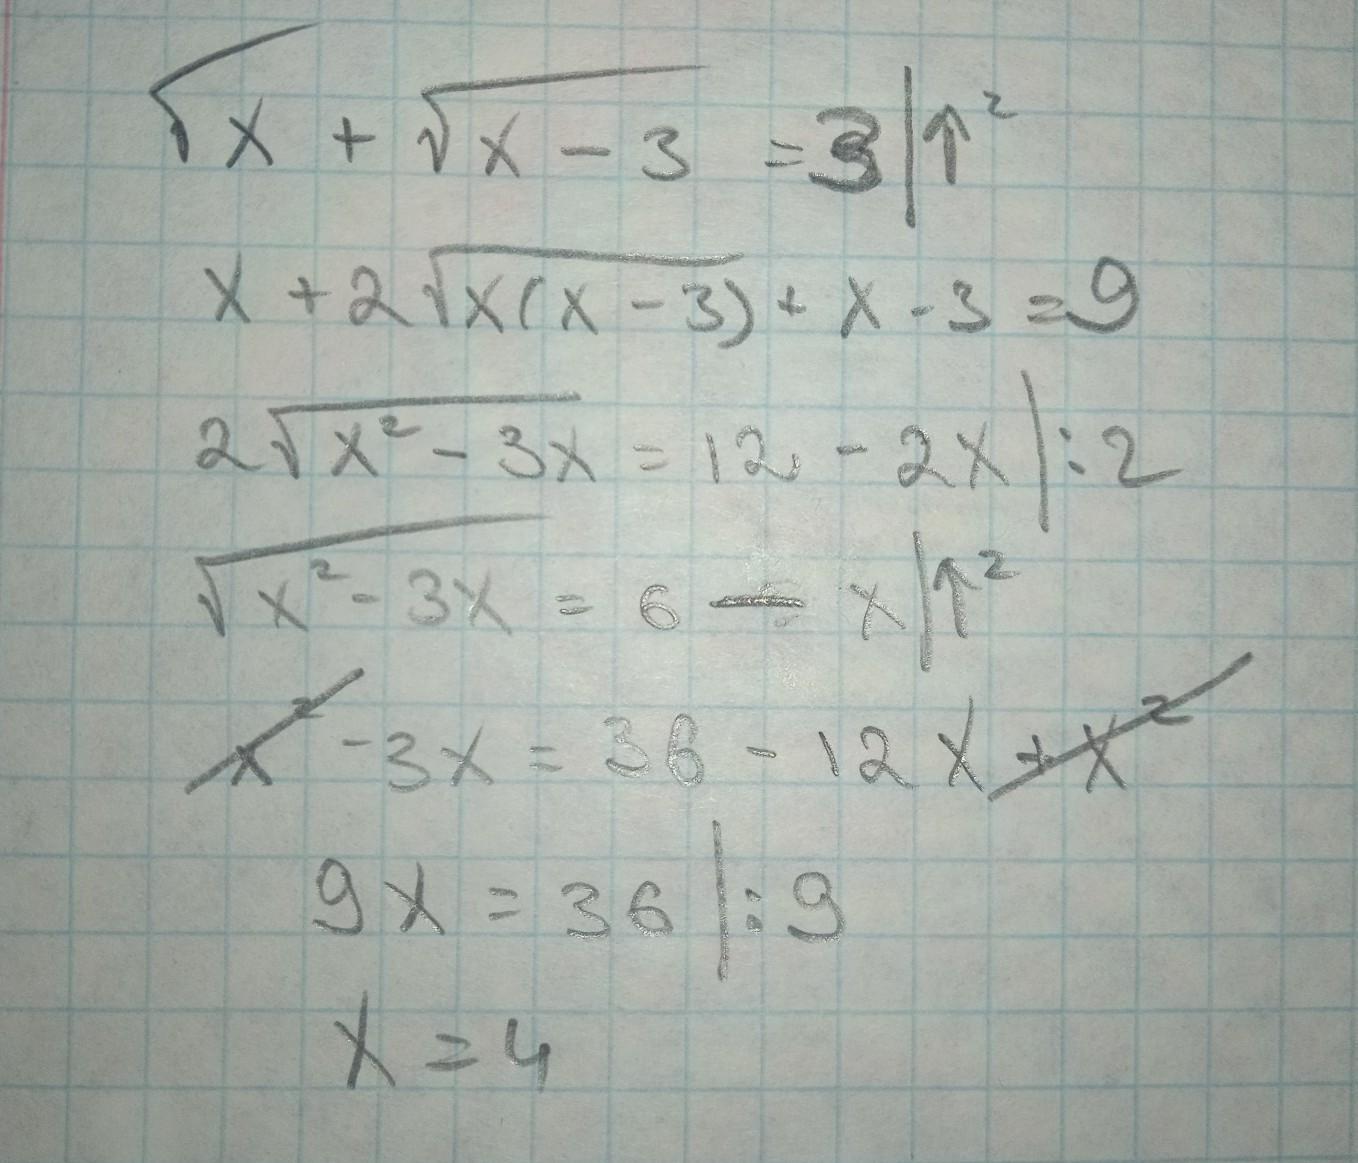 √x + √x - 3 = 3 | ↑²
x + 2√x(x - 3) + x - 3 = 9
2√x² - 3x = 12 - 2x | : 2
√x² - 3x = 6 - x | ↑²
x² - 3x = 36 - 12x + x²
9x = 36 | : 9
x = 4